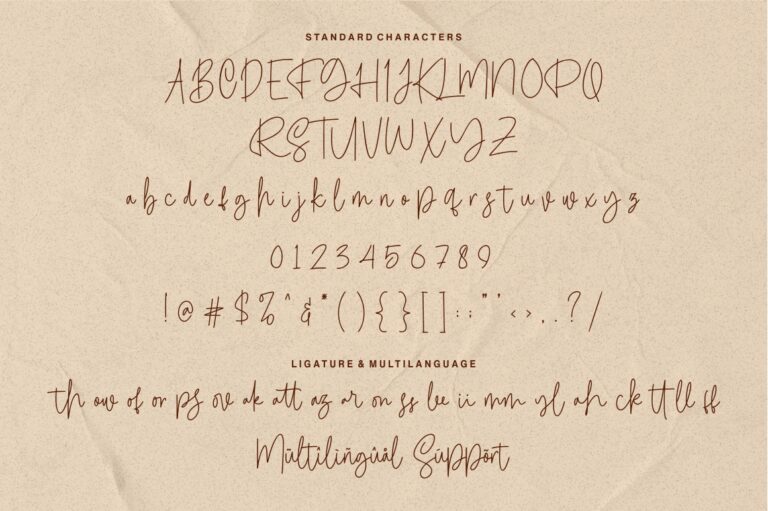 STANDARD CHARACTERS
ABCDEFGHIJKLMNOPQ
RSTUVWXYZ
a b c d e f g h i j k l m n o p q r s t u v w x y z
0 1 2 3 4 5 6 7 8 9
! @ # $ % ^ & * ( ) { } [ ] : ; " ' < > , . ? /
LIGATURE & MULTILANGUAGE
th ow of or ps ov ak att az ar on ss be ii mm yl ah ck tt ll ff
Mūltílïñgûål Súppõrt